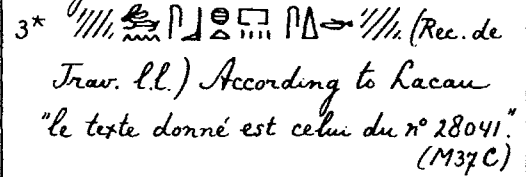 3* (Rec. de
Trav. l.l.) According to Lacau
"le texte donné est celui du nº 28041."
(M37C)